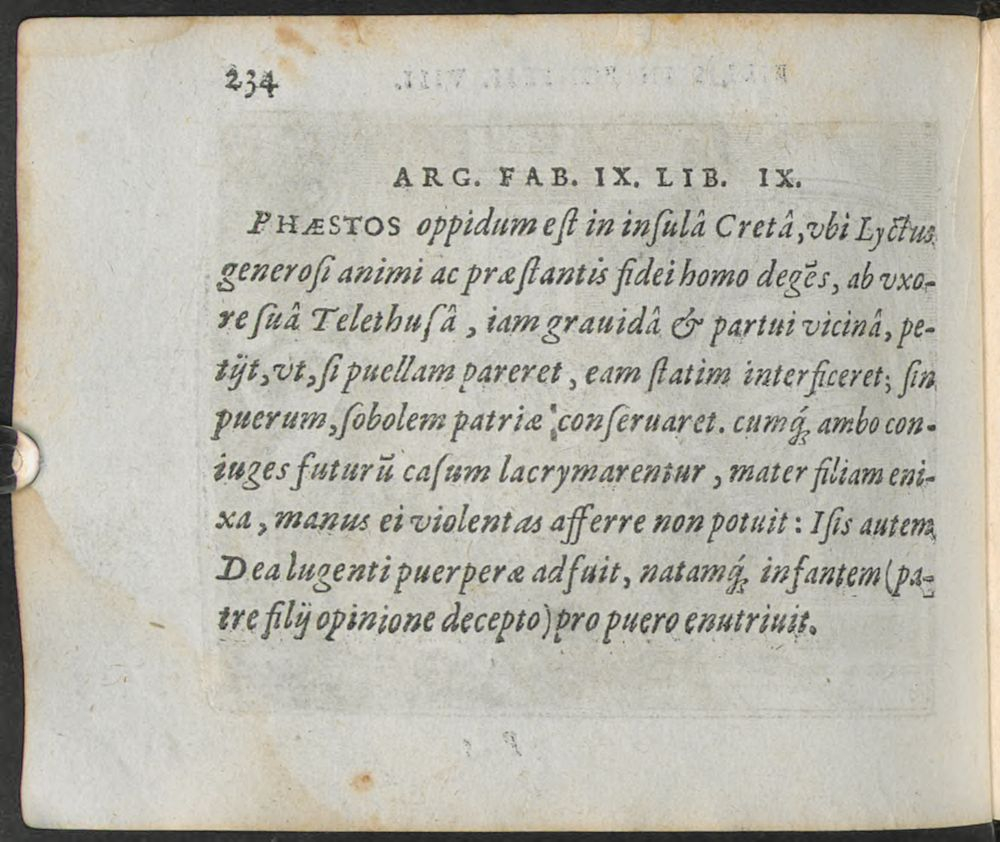 234
ARG. FAB. IX. LIB. IX.
PHÆSTOS oppidum eſt in inſulâ Cretâ, vbi Lyctus
generoſi animi ac præſtantis fidei homo degẽs, ab vxo-
re ſuâ Telethuſâ, iam grauidâ & partui vicinâ, pe-
tijt, vt, ſi puellam pareret, eam ſtatim interficeret; ſin
puerum, ſobolem patriæ conſeruaret. cumq́ʒ ambo con-
iuges futurũ caſum lacrymarentur, mater filiam eni-
xa, manus ei violentas afferre non potuit: Iſis autem
Dea lugenti puerperæ adfuit, natamq́ʒ infantem (pa-
tre filij opinione decepto) pro puero enutriuit.